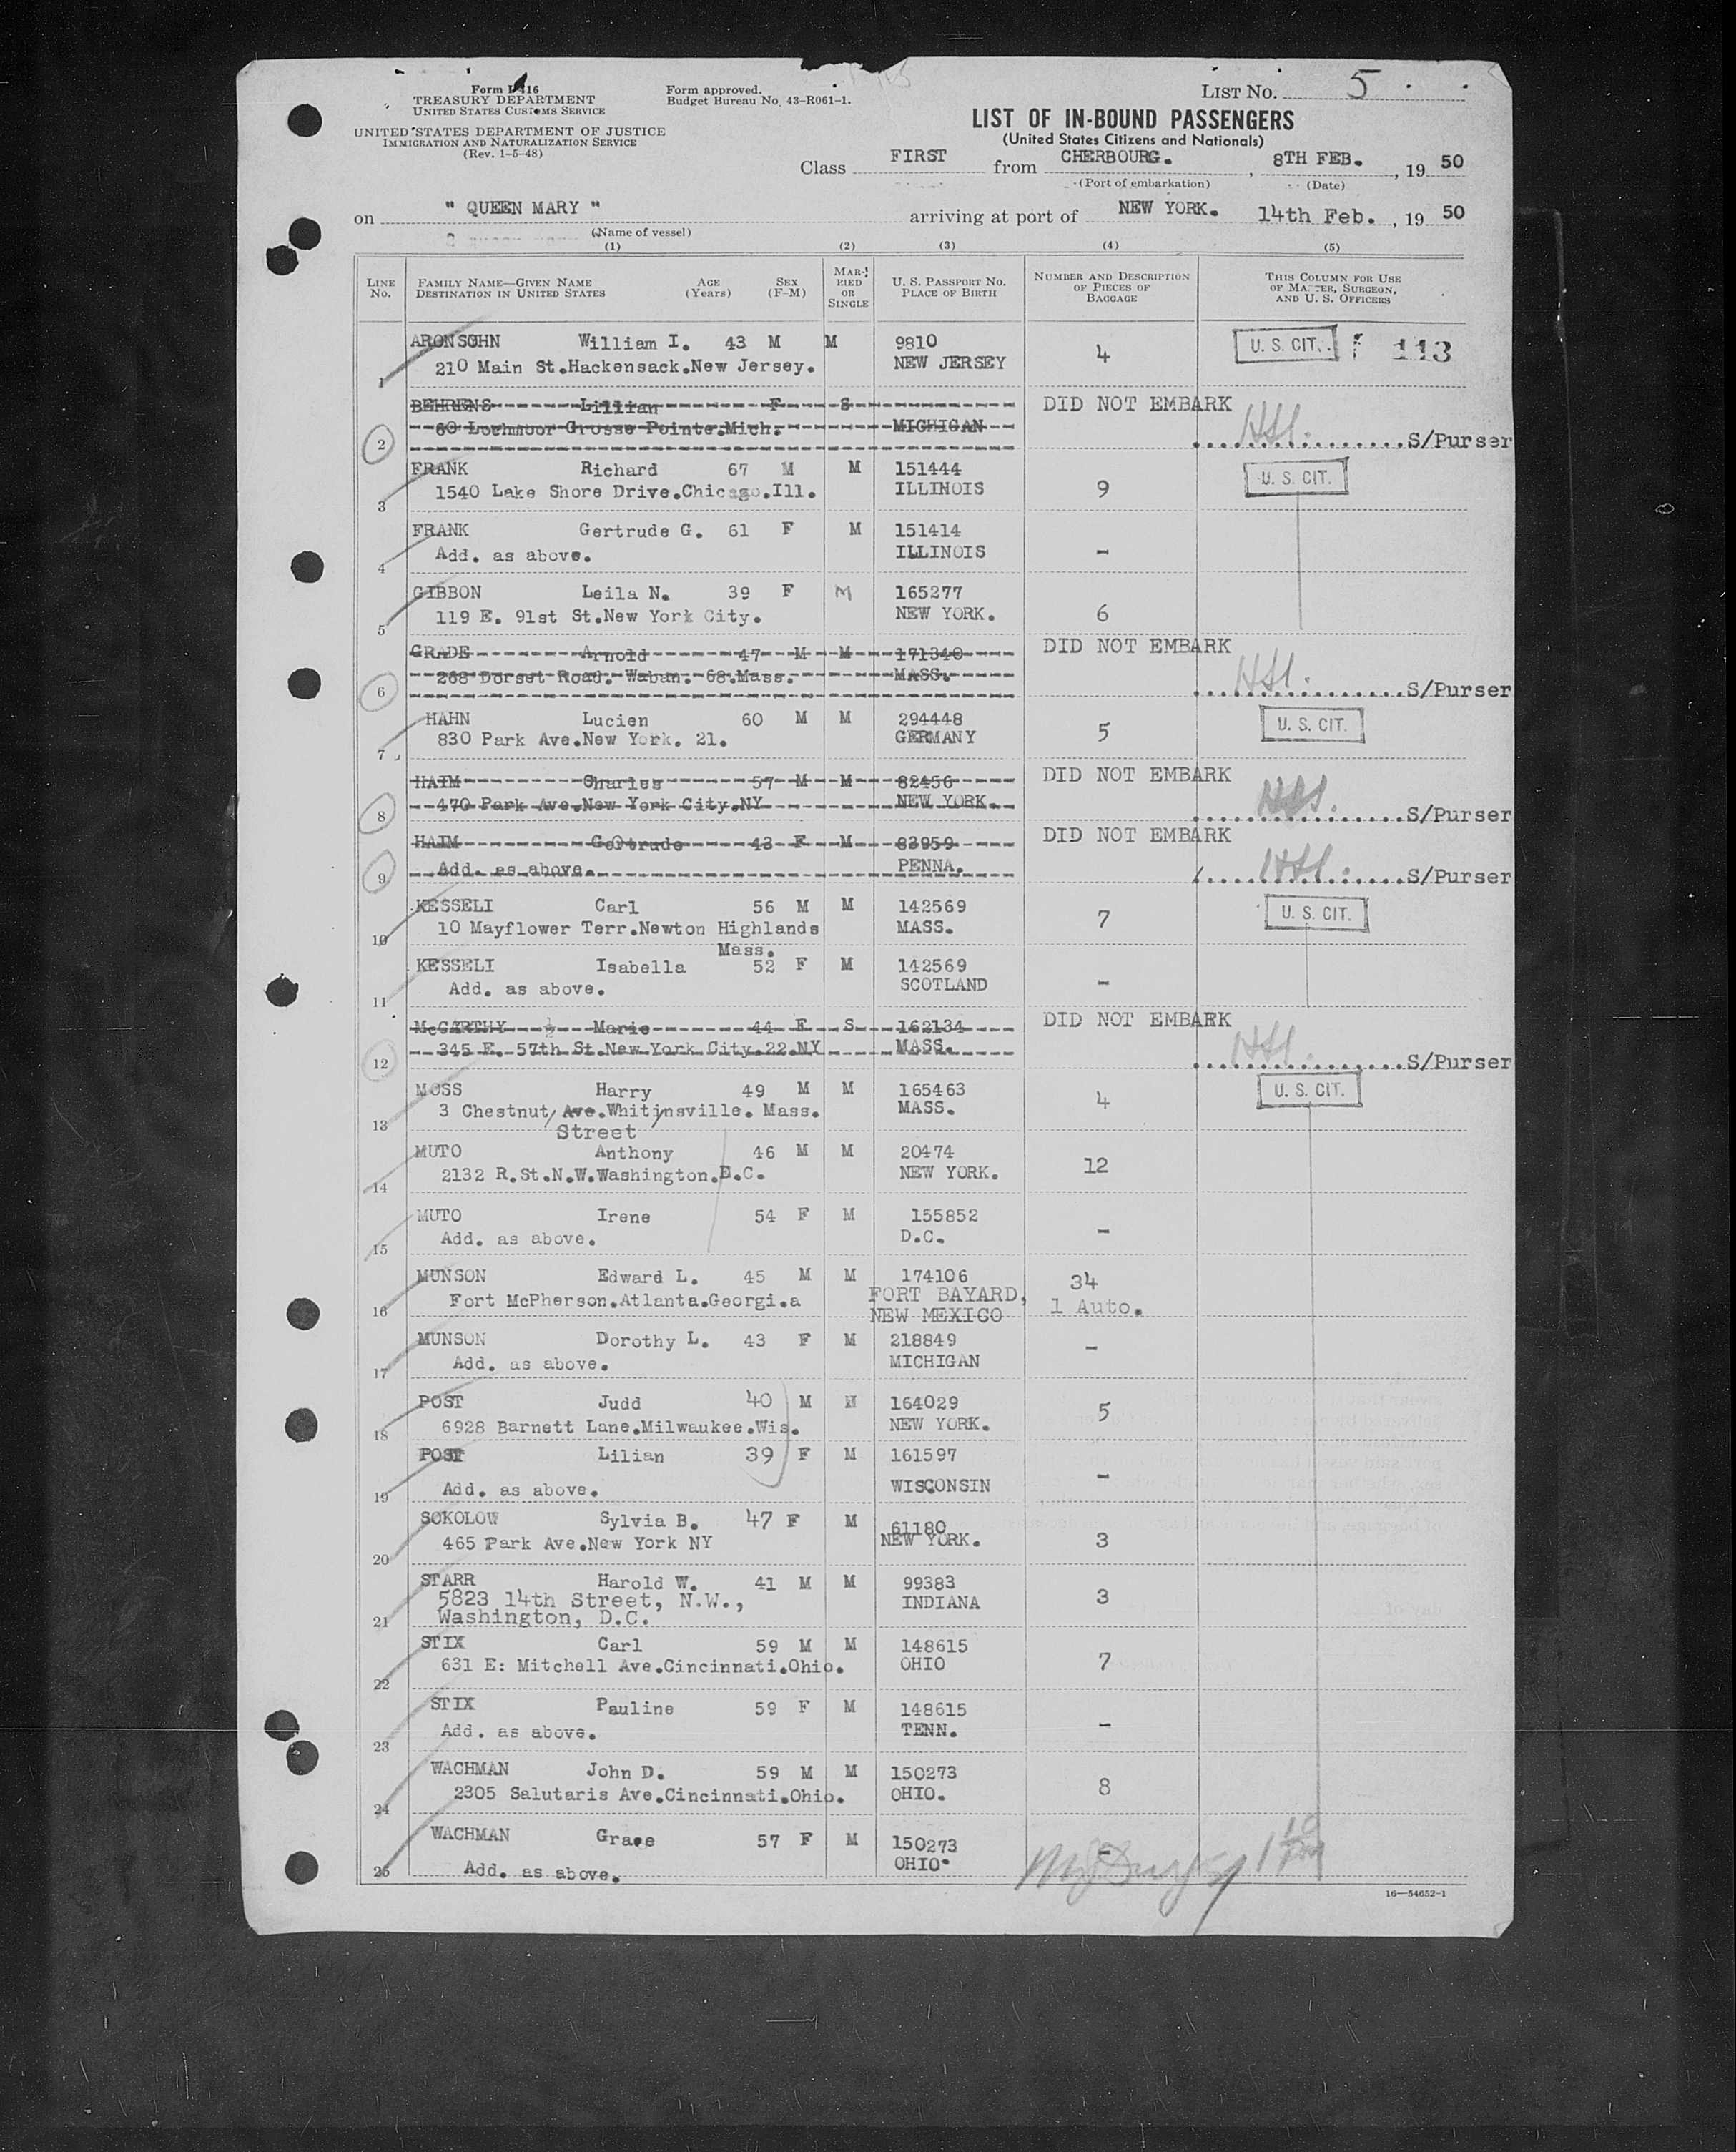 Form I-416
TREASURY DEPARTMENT
UNITED STATES CUSTOMS SERVICE
UNITED STATES DEPARTMENT OF JUSTICE
IMMIGRATION AND NATURALIZATION SERVICE
(Rev. 1-5-48)
Form approved.
Budget Bureau No. 43-R061-1.
LIST NO. 5
LIST OF IN-BOUND PASSENGERS
(United States Citizens and Nationals)
Class FIRST from CHERBOURG. , 8TH FEB. , 19 50
(Port of embarkation) (Date)
on " QUEEN MARY " arriving at port of NEW YORK. 14th Feb. , 19 50
(Name of vessel)
(1) (2) (3) (4) (5)
LINE NO. FAMILY NAME—GIVEN NAME DESTINATION IN UNITED STATES AGE (Years) SEX (F-M) MARRIED OR SINGLE U. S. PASSPORT NO. PLACE OF BIRTH NUMBER AND DESCRIPTION OF PIECES OF BAGGAGE THIS COLUMN FOR USE OF MASTER, SURGEON, AND U. S. OFFICERS
ARONSOHN William I. 43 M M 9810 4 U. S. CIT. 113
1 210 Main St.Hackensack.New Jersey. NEW JERSEY
BEHRENS Lillian F S DID NOT EMBARK
2 60 Lochmoor Grosse Pointe.Mich. MICHIGAN S/Purser
FRANK Richard 67 M M 151444 9 U. S. CIT.
3 1540 Lake Shore Drive.Chicago.Ill. ILLINOIS
FRANK Gertrude G. 61 F M 151414 -
4 Add. as above. ILLINOIS
GIBBON Leila N. 39 F M 165277 6
5 119 E. 91st St.New York City. NEW YORK.
GRADE Arnold 47 M M 171340 DID NOT EMBARK
6 268 Dorset Road. Waban. 68.Mass. MASS. S/Purser
HAHN Lucien 60 M M 294448 5 U. S. CIT.
7 830 Park Ave.New York. 21. GERMANY
HAIM Charles 57 M M 82456 DID NOT EMBARK
8 470 Park Ave.New York City.NY NEW YORK. S/Purser
HAIM Gertrude 43 F M 83959 DID NOT EMBARK
9 Add. as above. PENNA. S/Purser
KESSELI Carl 56 M M 142569 7 U. S. CIT.
10 10 Mayflower Terr.Newton Highlands MASS.
Mass.
KESSELI Isabella 52 F M 142569 -
11 Add. as above. SCOTLAND
McCARTHY Marie 44 F S 162134 DID NOT EMBARK
12 345 E. 57th St.New York City.22.NY MASS. S/Purser
MOSS Harry 49 M M 165463 4 U. S. CIT.
13 3 Chestnut Ave.Whitinsville. Mass. MASS.
Street
MUTO Anthony 46 M M 20474 12
14 2132 R.St.N.W.Washington.D.C. NEW YORK.
MUTO Irene 54 F M 155852 -
15 Add. as above. D.C.
MUNSON Edward L. 45 M M 174106 34
16 Fort McPherson.Atlanta.Georgi.a FORT BAYARD, 1 Auto.
NEW MEXICO
MUNSON Dorothy L. 43 F M 218849 -
17 Add. as above. MICHIGAN
POST Judd 40 M M 164029 5
18 6928 Barnett Lane.Milwaukee.Wis. NEW YORK.
POST Lilian 39 F M 161597 -
19 Add. as above. WISCONSIN
SOKOLOW Sylvia B. 47 F M 61180 3
20 465 Park Ave.New York NY NEW YORK.
STARR Harold W. 41 M M 99383 3
5823 14th Street, N.W., INDIANA
21 Washington, D.C.
STIX Carl 59 M M 148615 7
22 631 E: Mitchell Ave.Cincinnati.Ohio. OHIO
STIX Pauline 59 F M 148615 -
23 Add. as above. TENN.
WACHMAN John D. 59 M M 150273 8
24 2305 Salutaris Ave.Cincinnati.Ohio. OHIO.
WACHMAN Grace 57 F M 150273 -
25 Add. as above. OHIO
16—54652-1